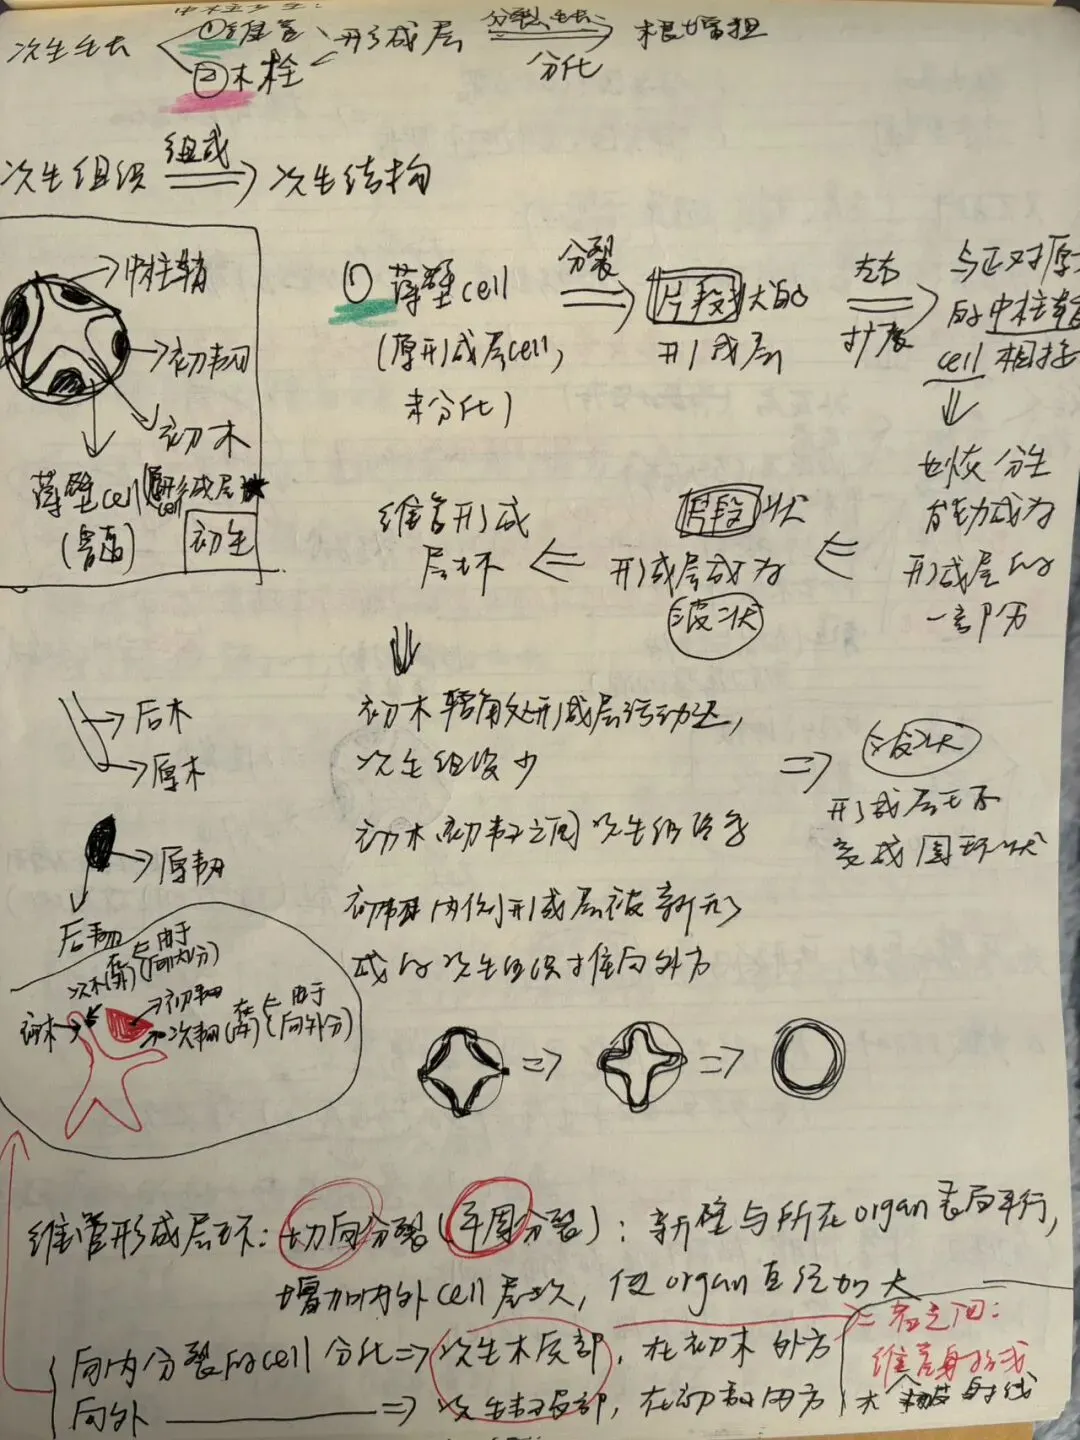 次生生长
①维管
②木栓
形成层 分裂、生长 分化 根增粗
次生组织 组成 次生结构
中柱鞘
初韧
初木
薄壁cell
初生
① 薄壁cell 分裂 片段状的 左右
(原形成层cell, 形成层 扩展
未分化)
与正对原
的中柱鞘
cell 相接
恢复分生
能力成为
形成层的
一部分
片段状
形成层成为
波状
维管形成
层环
初木辐角处形成层活动迟,
次生组织少
初木、初韧之间次生组织多
初韧内侧形成层被新形
成的次生组织推向外方
波状
形成层环
变成圆环状
后木
原木
原韧
后韧
次木(在内) 由于(向内分)
初木
初韧
次韧(在外) 由于(向外分)
维管形成层环: 切向分裂(平周分裂): 新壁与所在organ表面平行,
增加内外cell层次, 使organ直径加大
向内分裂的cell 分化 次生木质部, 在初木外方
向外 次生韧皮部, 在初韧内方
维管射线
木 射线